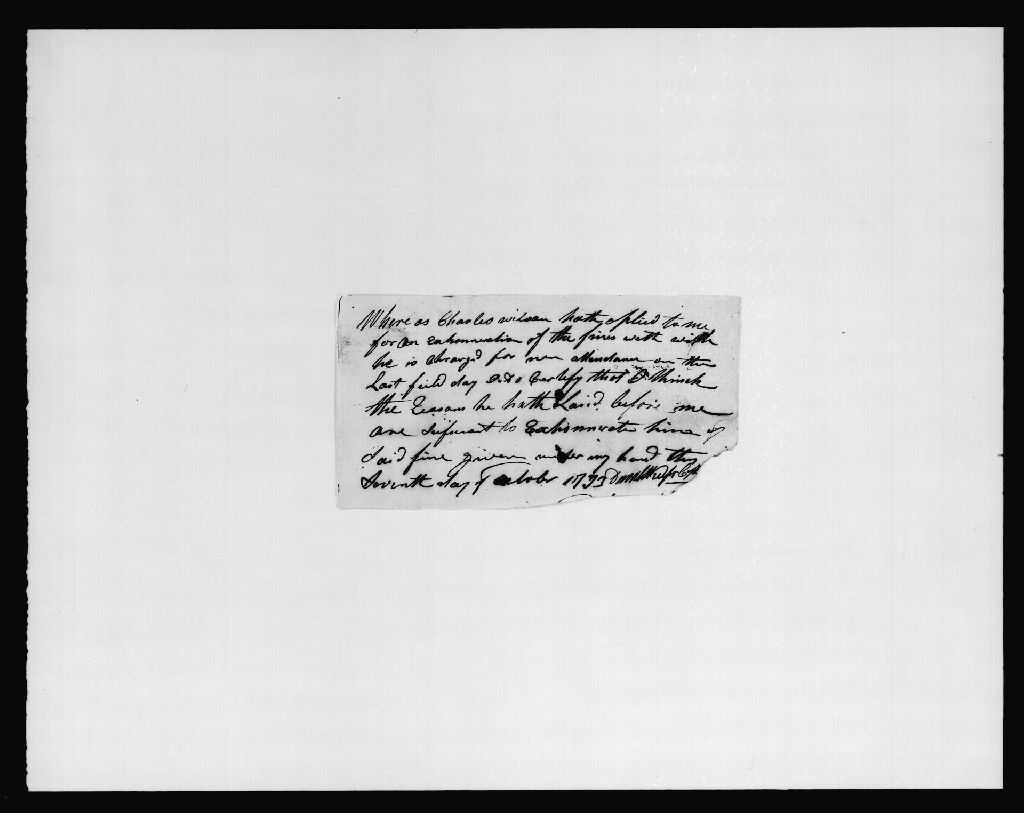 Whereas Charles wilson hath aplied to me
for an exhonnration of the fines with with
he is Charged for non attendance on the
Last field day I do Certefy that I think
the Reasons he hath Laid before me
are sufucent to Exhonnerate him of
said fine given under my hand this
Seventh day of October 179